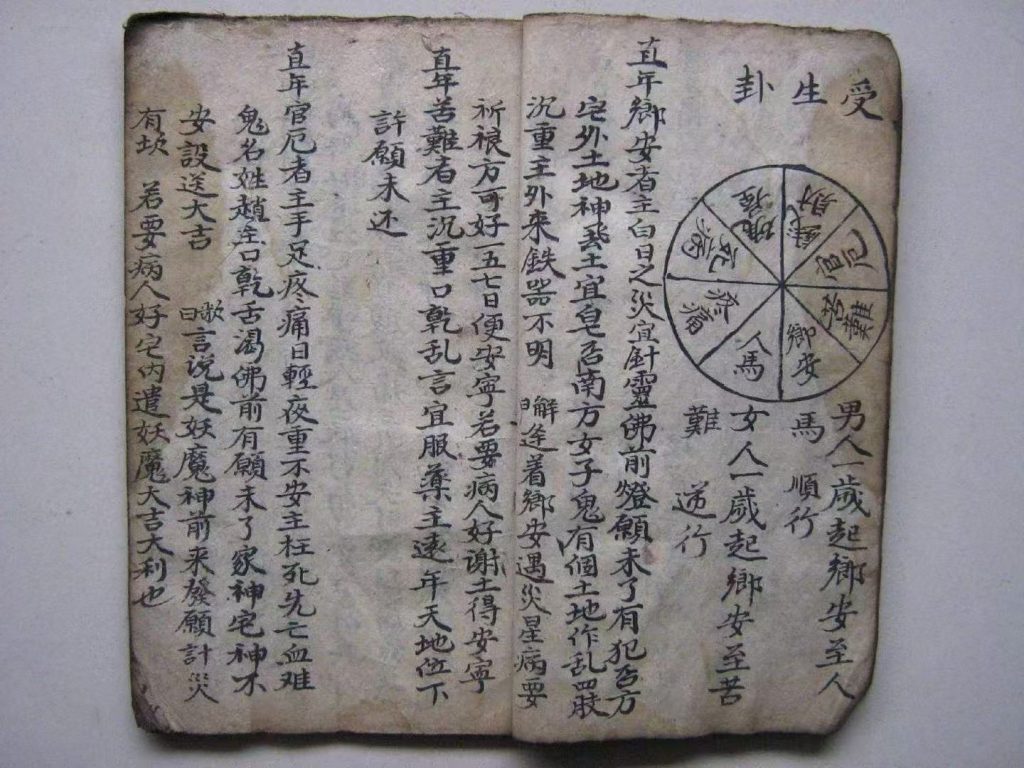 受生卦
錢財
官厄
苦難
鄉安
人馬
疼痛
死病
男人一歲起鄉安至人
馬 順行
女人一歲起鄉安至苦
難 逆行
直年鄉安者主白日之災宜 靈佛前燈願未了有犯 方
宅外土地神 土宜 南方女子鬼有個土地作乱四肢
沉重主外来鉄器不明 解曰 着鄉安遇災星病要
祈禳方可好一五七日便安寧若要病人好謝土得安寧
直年苦難者主沉重口乾乱言宜服藥主遠年天地位下
許願未还
直年官厄者主手足疼痛日輕夜重不安主枉死先亡血难
鬼名姓趙 口乾舌渴佛前有願未了家神宅神不
安設送大吉 歌曰 言说是妖魔神前来發願計災
有坎 若要病人好宅内遣妖魔大吉大利也